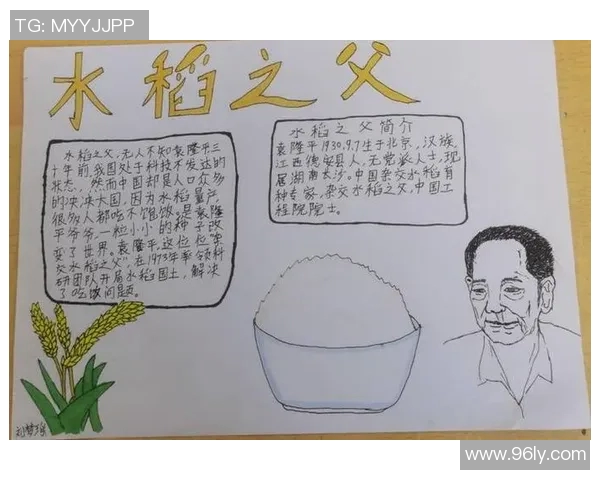 TG: MYYJJPP
水稻之父
水稻之父,无人不知袁隆平三
十年前,我国处于科技不发达的
状态,然而中国却是人口众多
的泱泱大国,因为水稻量产,
很多人都吃不饱饭。是袁隆
平爷爷,一粒小小的种子改
变了世界。袁隆平,这位位"杂
交水稻之父",在1973年率领科
研团队开启水稻国土,解决
了吃饭问题。
水稻之父简介
袁隆平1930.9.7生于北京,汉族,
江西德安县人,无党派人士,现
居湖南长沙。中国杂交水稻育
种专家,杂交水稻之父,中国工
程院院士。
刘梦瑶
www.96ly.com